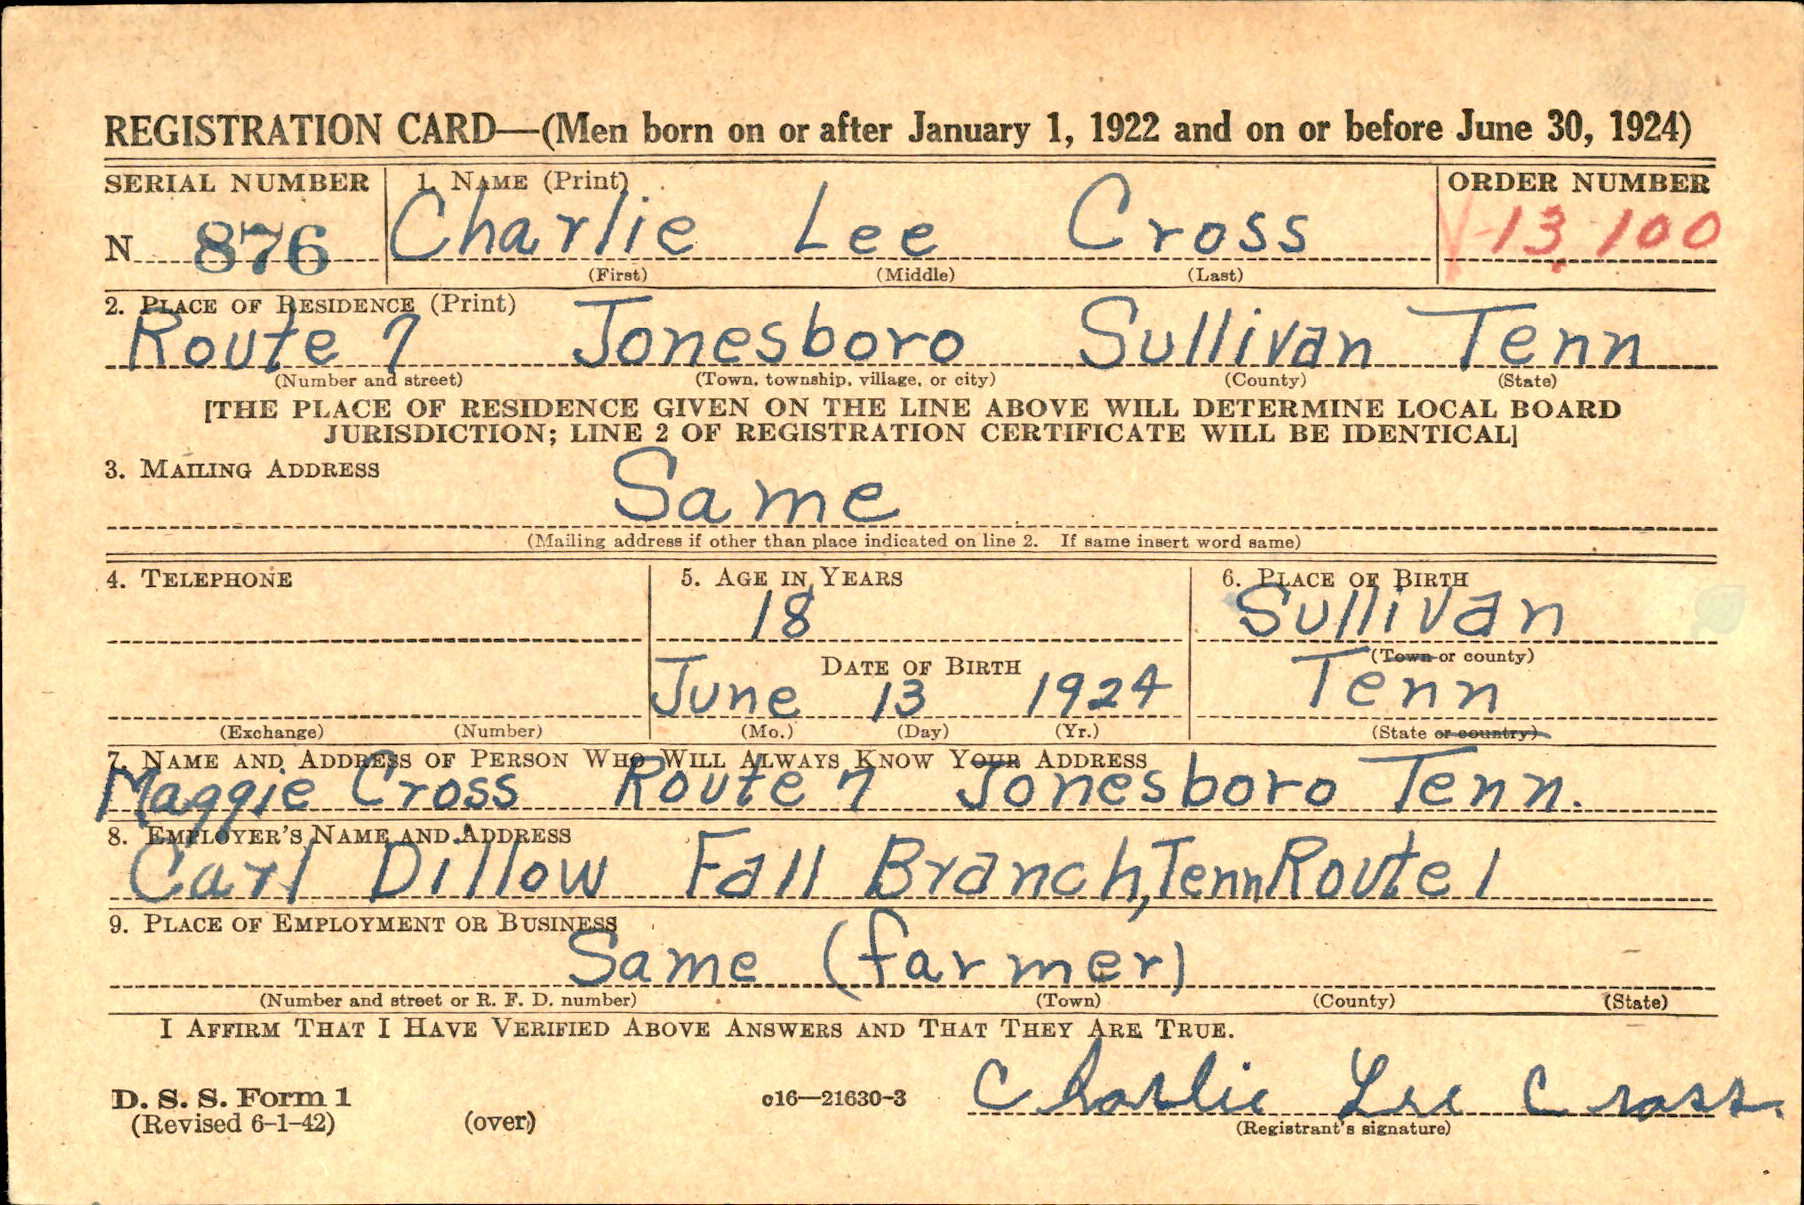 REGISTRATION CARD—(Men born on or after January 1, 1922 and on or before June 30, 1924)
SERIAL NUMBER 1. NAME (Print) ORDER NUMBER
N 876 Charlie Lee Cross 13,100
(First) (Middle) (Last)
2. PLACE OF RESIDENCE (Print)
Route 7 Jonesboro Sullivan Tenn
(Number and street) (Town, township, village, or city) (County) (State)
[THE PLACE OF RESIDENCE GIVEN ON THE LINE ABOVE WILL DETERMINE LOCAL BOARD
JURISDICTION; LINE 2 OF REGISTRATION CERTIFICATE WILL BE IDENTICAL]
3. MAILING ADDRESS
Same
(Mailing address if other than place indicated on line 2. If same insert word same)
4. TELEPHONE 5. AGE IN YEARS 6. PLACE OF BIRTH
18 Sullivan
DATE OF BIRTH (Town or county)
June 13 1924 Tenn
(Exchange) (Number) (Mo.) (Day) (Yr.) (State or country)
7. NAME AND ADDRESS OF PERSON WHO WILL ALWAYS KNOW YOUR ADDRESS
Maggie Cross Route 7 Jonesboro Tenn.
8. EMPLOYER'S NAME AND ADDRESS
Carl Dillow Fall Branch, Tenn Route 1
9. PLACE OF EMPLOYMENT OR BUSINESS
Same (farmer)
(Number and street or R. F. D. number) (Town) (County) (State)
I AFFIRM THAT I HAVE VERIFIED ABOVE ANSWERS AND THAT THEY ARE TRUE.
D. S. S. Form 1
(Revised 6-1-42) (over) c16—21630-3 Charlie Lee Cross.
(Registrant's signature)